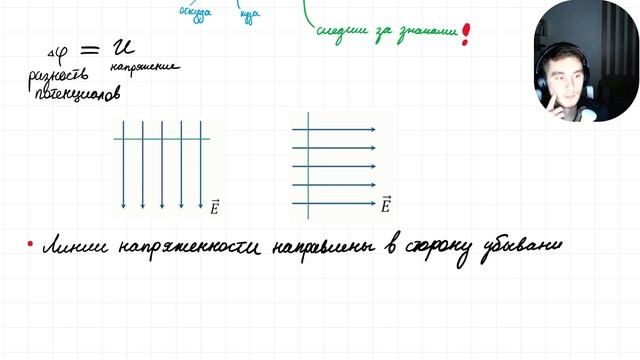 откуда куда
следим за знаками!
Δφ = U
разность напряжение
потенциалов
E
E
• Линии напряженности направлены в сторону убывани